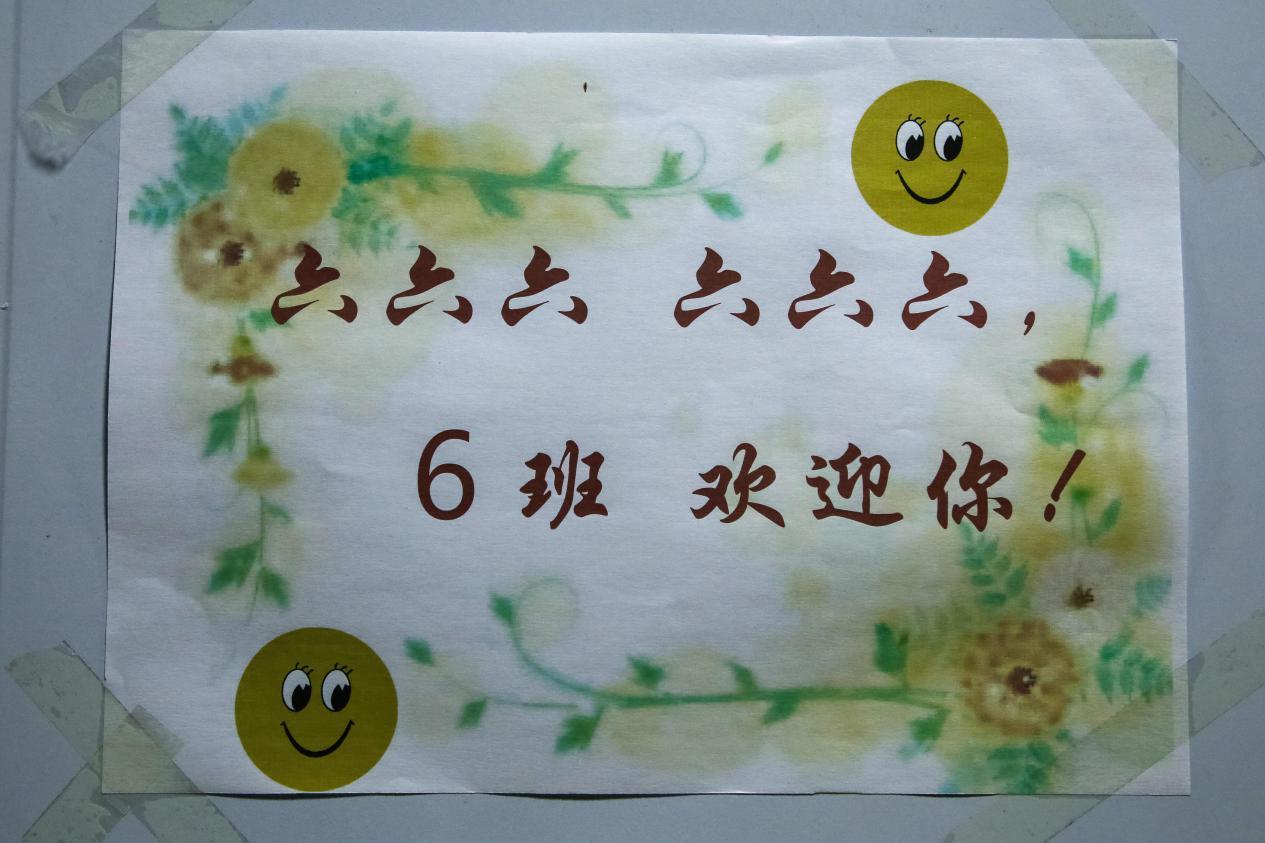 六六六 六六六,
6班 欢迎你!